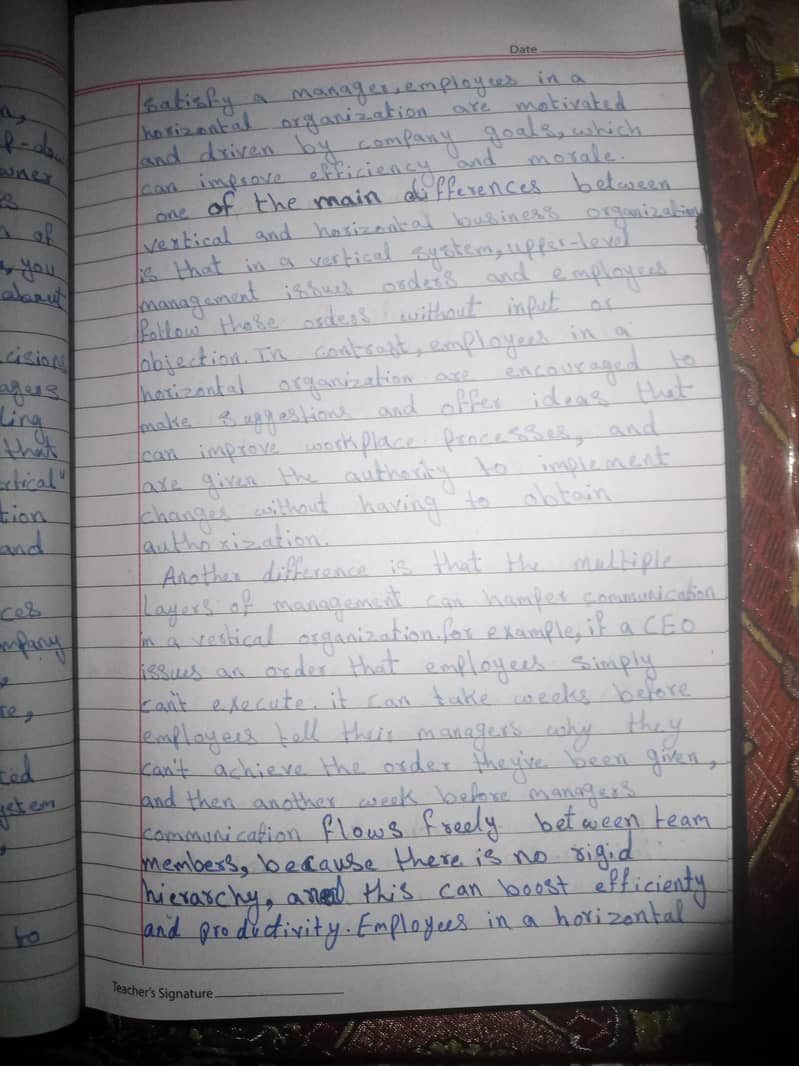 Date
satisfy a manager, employees in a
horizontal organization are motivated
and driven by company goals, which
can improve efficiency and morale.
one of the main differences between
vertical and horizontal business organization
is that in a vertical system, upper-level
management issues orders and employees
follow those orders without input or
objection. In contrast, employees in a
horizontal organization are encouraged to
make suggestions and offer ideas that
can improve workplace processes, and
are given the authority to implement
changes without having to obtain
authorization.
Another difference is that the multiple
layers of management can hamper communication
in a vertical organization. for example, if a CEO
issues an order that employees simply
can't execute. it can take weeks before
employees tell their managers why they
can't achieve the order they've been given,
and then another week before managers
communication flows freely between team
members, because there is no rigid
hierarchy, and this can boost efficienty
and productivity. Employees in a horizontal
Teacher's Signature
n,
p-dow
owner
s
n of
, you
about
cisions
agers
ling
that
rtical"
tion
and
ces
mpany
re,
ted
ystem
to